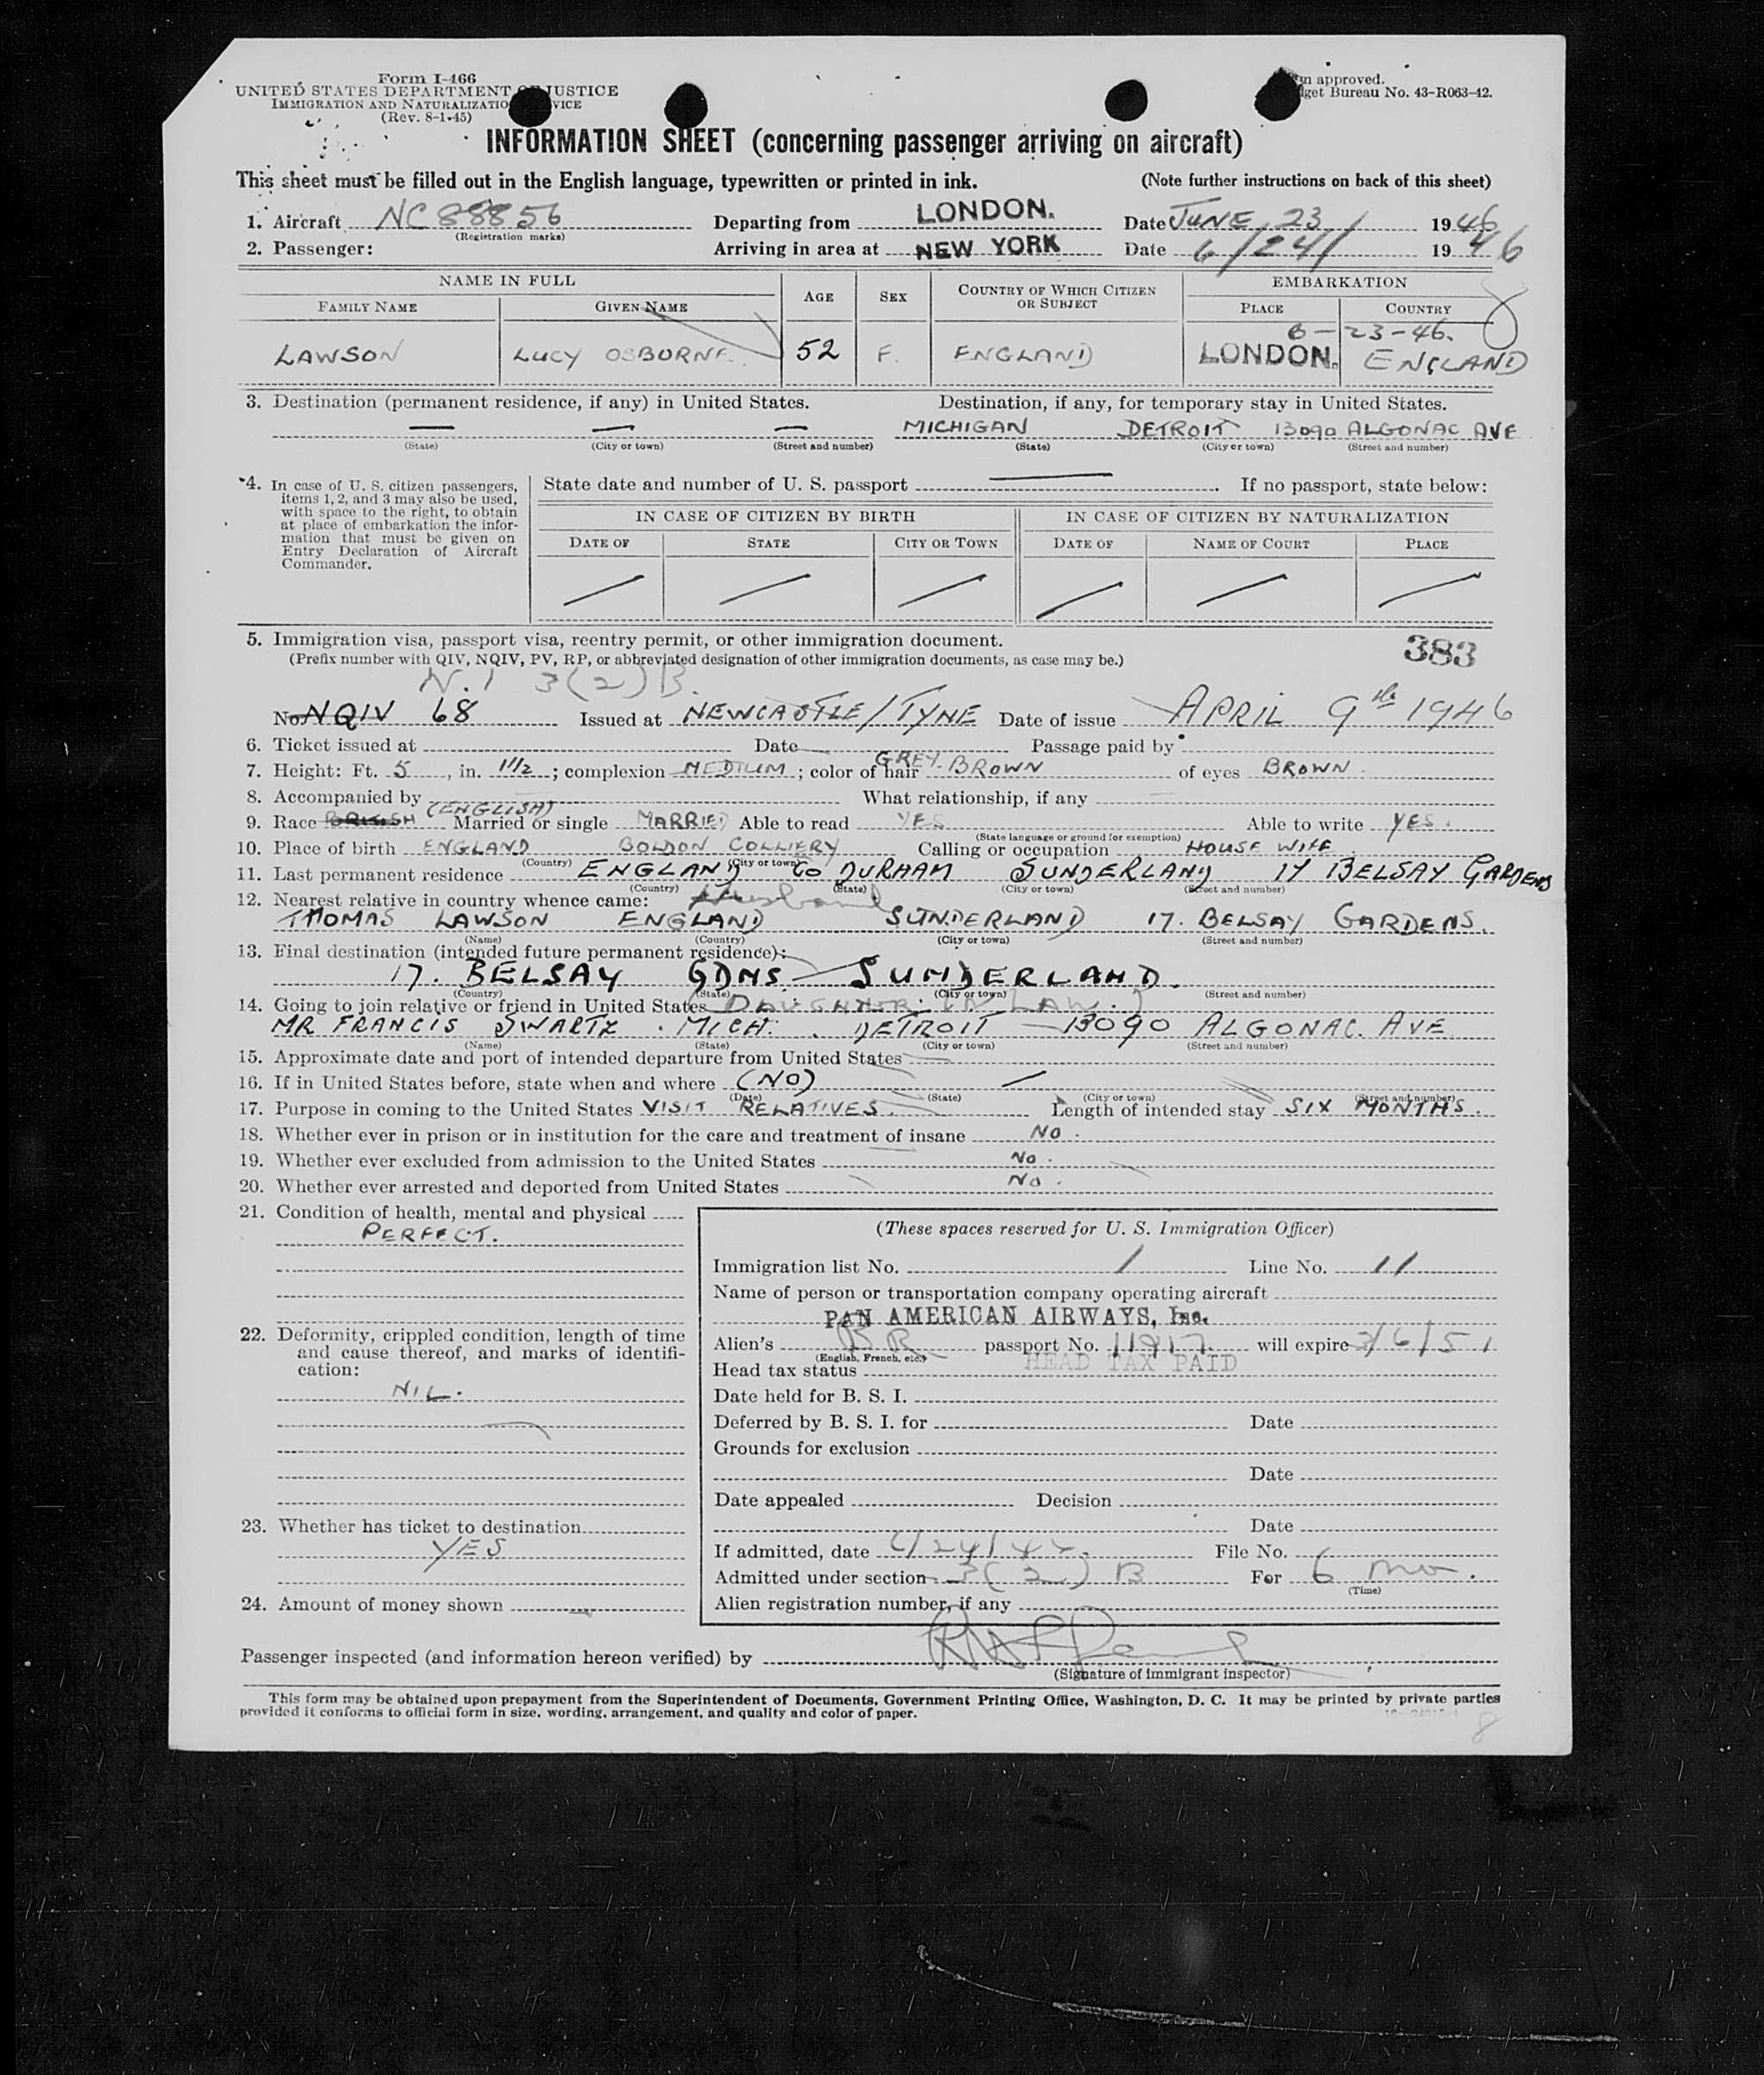 Form I-466
UNITED STATES DEPARTMENT OF JUSTICE
IMMIGRATION AND NATURALIZATION SERVICE
(Rev. 8-1-45)
approved.
Budget Bureau No. 43-R063-42.
INFORMATION SHEET (concerning passenger arriving on aircraft)
This sheet must be filled out in the English language, typewritten or printed in ink. (Note further instructions on back of this sheet)
1. Aircraft NC 88856 Departing from LONDON. Date JUNE 23 1946
(Registration marks)
2. Passenger: Arriving in area at NEW YORK Date 6/24/ 1946
NAME IN FULL AGE SEX COUNTRY OF WHICH CITIZEN OR SUBJECT EMBARKATION
FAMILY NAME GIVEN NAME PLACE COUNTRY
6-23-46.
LAWSON LUCY OSBORNE 52 F. ENGLAND LONDON. ENGLAND
3. Destination (permanent residence, if any) in United States. Destination, if any, for temporary stay in United States.
— — — MICHIGAN DETROIT 13090 ALGONAC AVE
(State) (City or town) (Street and number) (State) (City or town) (Street and number)
4. In case of U. S. citizen passengers, items 1, 2, and 3 may also be used, with space to the right, to obtain at place of embarkation the information that must be given on Entry Declaration of Aircraft Commander.
State date and number of U. S. passport — . If no passport, state below:
IN CASE OF CITIZEN BY BIRTH IN CASE OF CITIZEN BY NATURALIZATION
DATE OF STATE CITY OR TOWN DATE OF NAME OF COURT PLACE
/ / / / / /
5. Immigration visa, passport visa, reentry permit, or other immigration document. 383
(Prefix number with QIV, NQIV, PV, RP, or abbreviated designation of other immigration documents, as case may be.)
N.I 3(2)B.
No. NQIV 68 Issued at NEWCASTLE/TYNE Date of issue APRIL 9th 1946
6. Ticket issued at Date Passage paid by
7. Height: Ft. 5, in. 1 1/2; complexion MEDIUM; color of hair GREY BROWN of eyes BROWN.
8. Accompanied by What relationship, if any
(ENGLISH)
9. Race BRITISH Married or single MARRIED Able to read YES Able to write YES.
(State language or ground for exemption)
10. Place of birth ENGLAND BOLDON COLLIERY Calling or occupation HOUSE WIFE
(Country) (City or town)
11. Last permanent residence ENGLAND Co DURHAM SUNDERLAND 17 BELSAY GARDENS
(Country) (State) (City or town) (Street and number)
12. Nearest relative in country whence came: Husband
THOMAS LAWSON ENGLAND SUNDERLAND 17. BELSAY GARDENS.
(Name) (Country) (City or town) (Street and number)
13. Final destination (intended future permanent residence):
17. BELSAY GDNS. SUNDERLAND.
(Country) (State) (City or town) (Street and number)
14. Going to join relative or friend in United States DAUGHTER IN LAW.
MR FRANCIS SWARTZ . MICH. . DETROIT 13090 ALGONAC. AVE
(Name) (State) (City or town) (Street and number)
15. Approximate date and port of intended departure from United States
16. If in United States before, state when and where (NO)
(Date) (State) (City or town) (Street and number)
17. Purpose in coming to the United States VISIT RELATIVES. Length of intended stay SIX MONTHS.
18. Whether ever in prison or in institution for the care and treatment of insane NO.
19. Whether ever excluded from admission to the United States NO.
20. Whether ever arrested and deported from United States NO.
21. Condition of health, mental and physical
PERFECT.
22. Deformity, crippled condition, length of time and cause thereof, and marks of identification:
NIL.
23. Whether has ticket to destination
YES
24. Amount of money shown —
(These spaces reserved for U. S. Immigration Officer)
Immigration list No. 1 Line No. 11
Name of person or transportation company operating aircraft
PAN AMERICAN AIRWAYS, Inc.
Alien's BR passport No. 11917. will expire 3/6/51
(English, French, etc.)
Head tax status HEAD TAX PAID
Date held for B. S. I.
Deferred by B. S. I. for Date
Grounds for exclusion
Date
Date appealed Decision
Date
If admitted, date 6/24/46. File No.
Admitted under section 3(2)B For 6 mo.
(Time)
Alien registration number, if any
Passenger inspected (and information hereon verified) by
(Signature of immigrant inspector)
This form may be obtained upon prepayment from the Superintendent of Documents, Government Printing Office, Washington, D. C. It may be printed by private parties
provided it conforms to official form in size, wording, arrangement, and quality and color of paper.
8